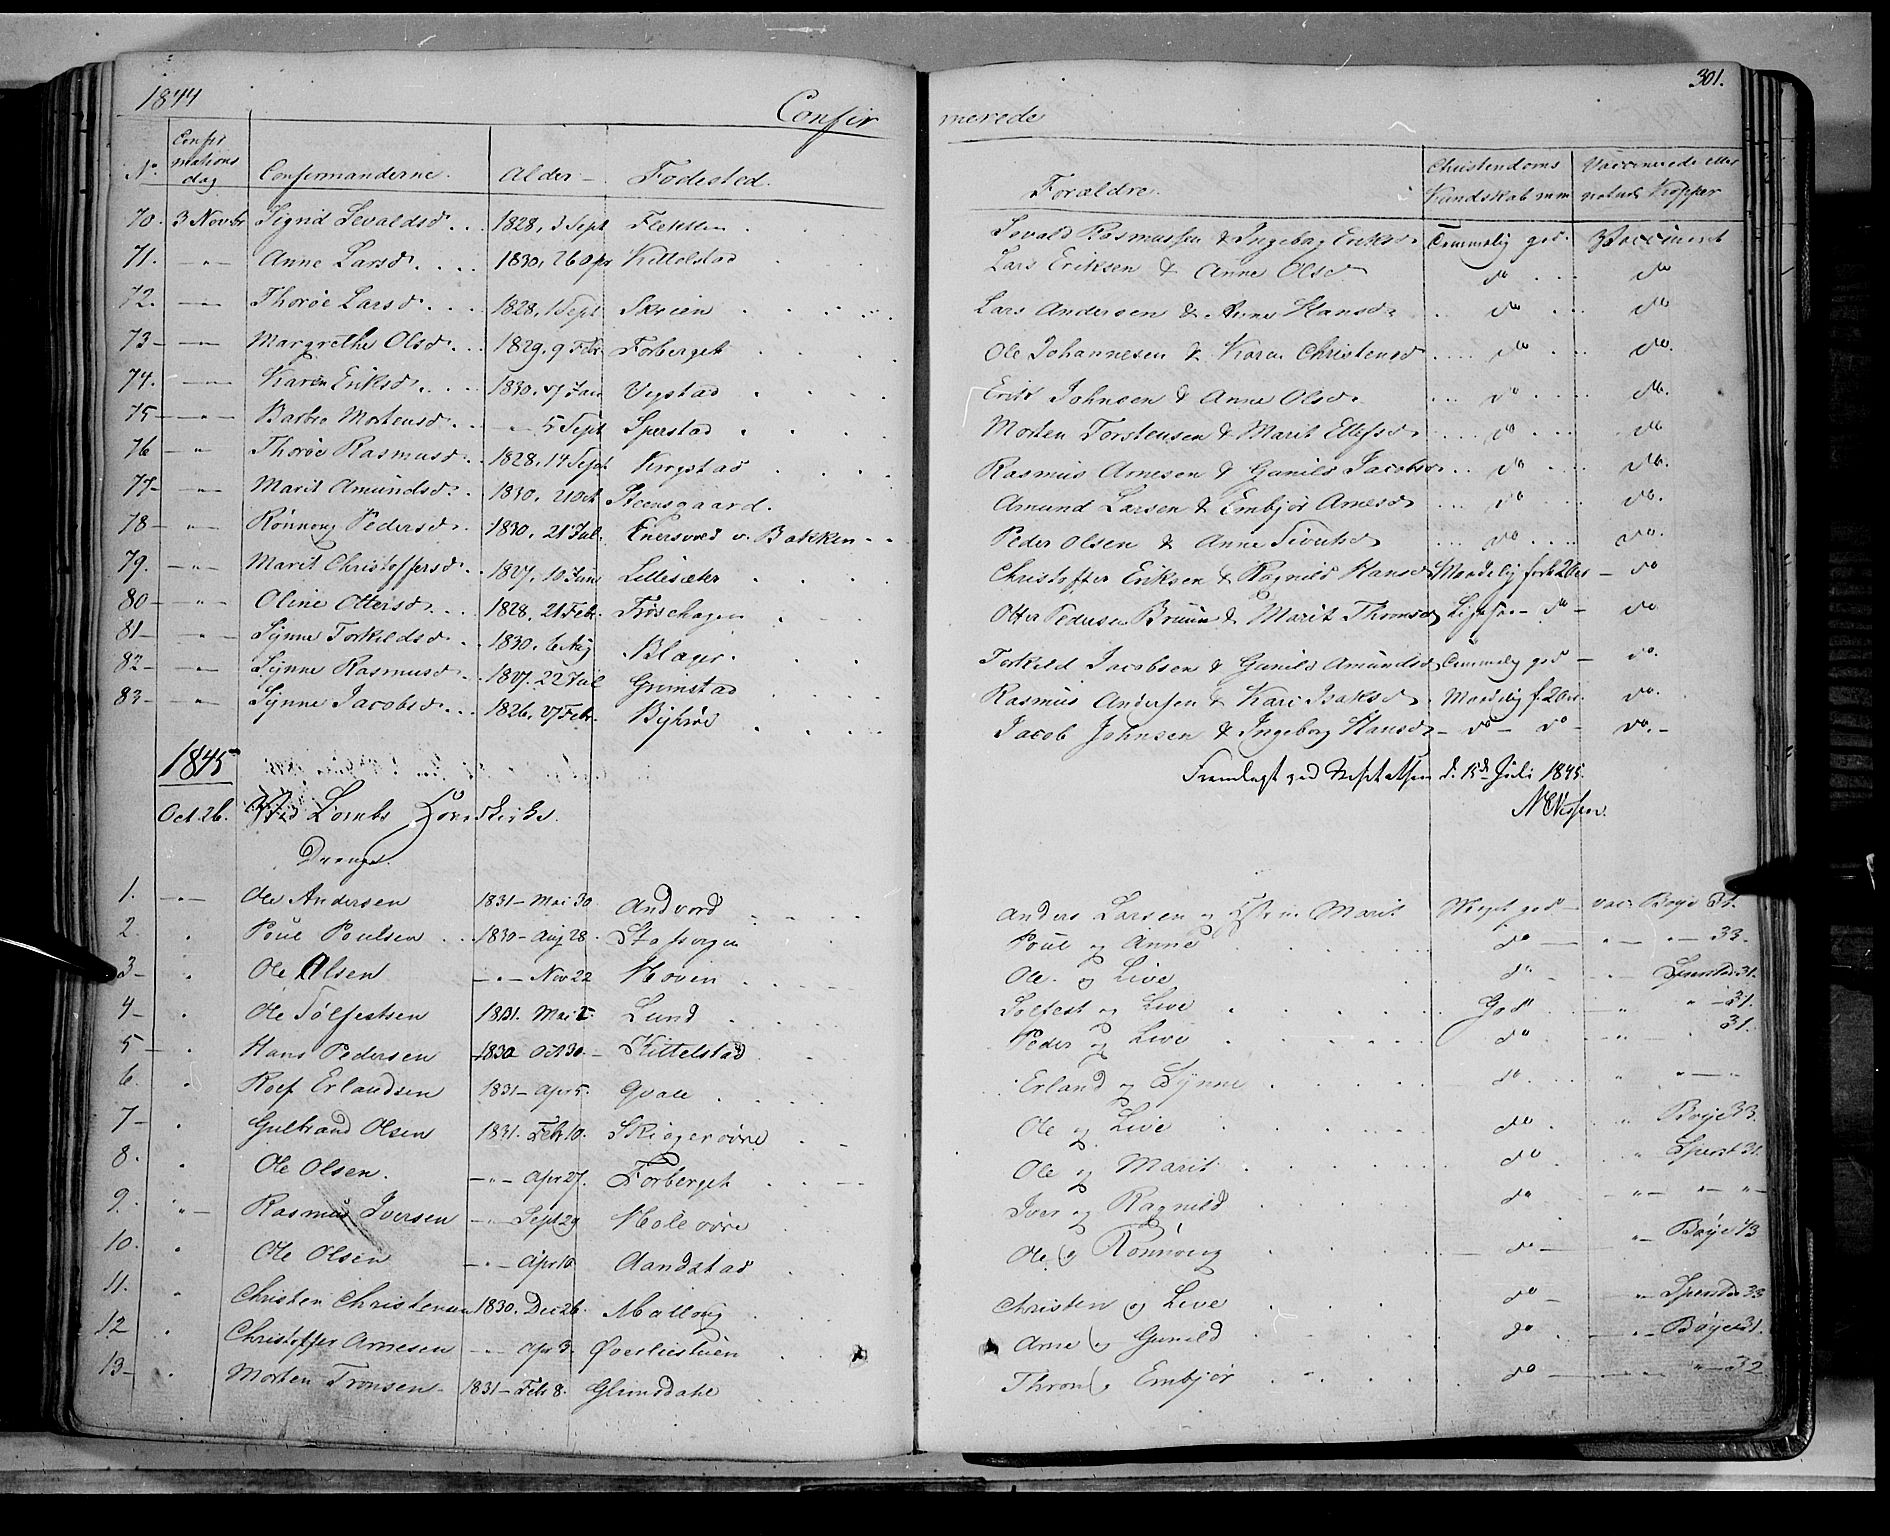 1844
Confir
merede
301.
No
Confirmations dag
Confirmanderne.
Alder
Födested.
Forældre.
Christendoms Kundskab m m
Vaccinerede eller naturl. Kopper
70. 3 Novbr Sigrid Sevaldsd. 1828, 3 Sept Flekken Sevald Rasmussen & Ingeborg Eriksd. Temmelig god. Vaccineret
71. " Anne Larsd. 1830, 26 Apr Kittelstad Lars Eriksen & Anne Olsd. do do
72. " Thoröe Larsd. 1828, 1 Sept Skrien Lars Andersen & Anne Hansd. do do
73 " Margrethe Olsd. 1829, 9 Febr Forberget Ole Johannesen & Karen Christensd do do.
74. " Karen Eriksd. 1830, 7 Jan Vigstad Erik Johnsen & Anne Olsd. do do.
75 " Barbro Mortensd. " 5 Sept Sperstad Morten Torstensen & Marit Ellefsd. do do
76 " Thoröe Rasmusd. 1828, 14 Sept Krogstad Rasmus Arnesen & Gunild Jacobsd. do do.
77 " Marit Amundsd. 1830, 2 Oct Steensgaard. Amund Larsen & Embjör Arnesd do do.
78 " Rönnoug Pedersd. 1830, 21 Jul. Enersvold v. Bakken Peder Olsen & Anne Sivertsd do do.
79. " Marit Christoffersd. 1827, 10 Juni Lillesæter Christoffer Eriksen & Ragnild Hansd Maadelig do
80 " Oline Ottersd. 1828, 21 Febr. Fröschagen Otter Pedersen Bruun & Marit Thomsd do do
81 " Synne Torkildsd. 1830, 6 Aug Blager. Torkild Jacobsen & Gunild Amundsd Temmelig god do.
82 " Synne Rasmusd. 1827, 22 Jul Grimstad Rasmus Andersen & Kari Isaksd Maadelig do.
83 " Synne Jacobsd. 1826, 7 Febr. Bykröe Jacob Johnsen & Ingeborg Hansd do do do.
1845
Fremlagt ved Visitatsen d. 15de Juli 1845.
Oct. 26. Ved Lombs Hoved Kirke.
Drenge.
1. " Ole Andersen 1831 Mai 30 Andvord Anders Larsen og Marit god vac: Böye 31.
2. " Poul Poulsen 1830 Aug 28. Poul og Anne do " " 33.
3 " Ole Olsen " Nov 22 Hoven Ole og Live do " Sperstad 31.
4 " Ole Tolfestsen 1831. Mai Lund Tolfest og Live God " " 31.
5 " Hans Pedersen 1830 Oct 30 Kittelstad Peder og Live do " 31.
6. " Rolf Erlandsen 1831 Apr 5. Qvale Erland og Synne do " " "
7 " Gulbrand Olsen 1831. Feb 10. Ole og Live do " Böye 33.
8. " Ole Olsen. " Apr 27. Forberget Ole og Marit do " Sperst 31.
9. " Rasmus Iversen " Sept 29 Iver og Ragnild do " " "
10. " Ole Olsen " Apr 10 Aandstad Ole og Rönnoug do " Böye
11. " Christen Christensen 1830. Dec 26. Christen og Live do " Sperstad 33
12 " Christoffer Arnesen " Apr 3. Øverliestuen Arne og Gunild do " Böye 31.
13 " Morten Tronsen 1831 Feb 8. Glimsdahl Thron og Embjör do " 32